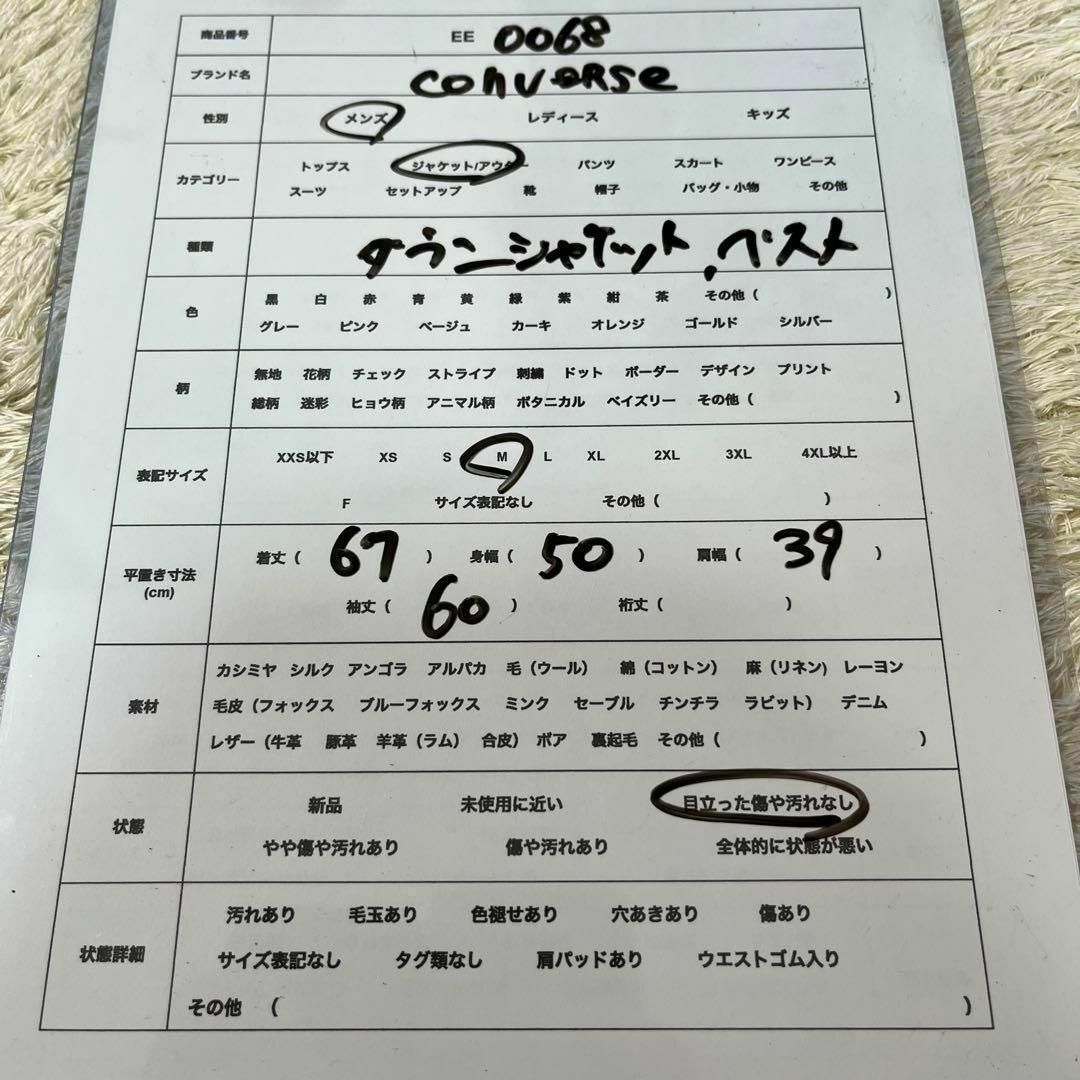 商品番号 EE 0068
ブランド名 converse
性別 メンズ レディース キッズ
カテゴリー トップス ジャケット/アウター パンツ スカート ワンピース
スーツ セットアップ 靴 帽子 バッグ・小物 その他
種類 ダウンジャケット、ベスト
色 黒 白 赤 青 黄 緑 紫 紺 茶 その他 ( )
グレー ピンク ベージュ カーキ オレンジ ゴールド シルバー
柄 無地 花柄 チェック ストライプ 刺繍 ドット ボーダー デザイン プリント
総柄 迷彩 ヒョウ柄 アニマル柄 ボタニカル ペイズリー その他 ( )
表記サイズ XXS以下 XS S M L XL 2XL 3XL 4XL以上
F サイズ表記なし その他 ( )
平置き寸法 (cm) 着丈 ( 67 ) 身幅 ( 50 ) 肩幅 ( 39 )
袖丈 ( 60 ) 裄丈 ( )
素材 カシミヤ シルク アンゴラ アルパカ 毛 (ウール) 綿 (コットン) 麻 (リネン) レーヨン
毛皮 (フォックス ブルーフォックス ミンク セーブル チンチラ ラビット) デニム
レザー (牛革 豚革 羊革 (ラム) 合皮) ボア 裏起毛 その他 ( )
状態 新品 未使用に近い 目立った傷や汚れなし
やや傷や汚れあり 傷や汚れあり 全体的に状態が悪い
状態詳細 汚れあり 毛玉あり 色褪せあり 穴あきあり 傷あり
サイズ表記なし タグ類なし 肩パッドあり ウエストゴム入り
その他 ( )